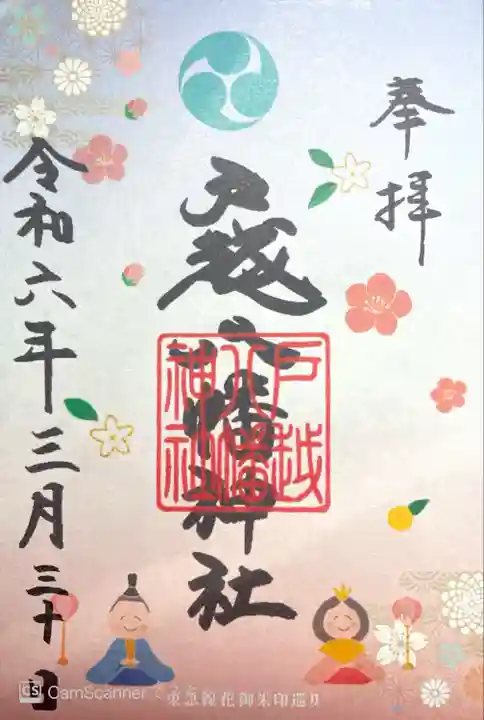 奉拝
戸越八幡神社
戸越
八幡
神社
令和六年三月三十日
CS CamScanner で
東急線花御朱印巡り